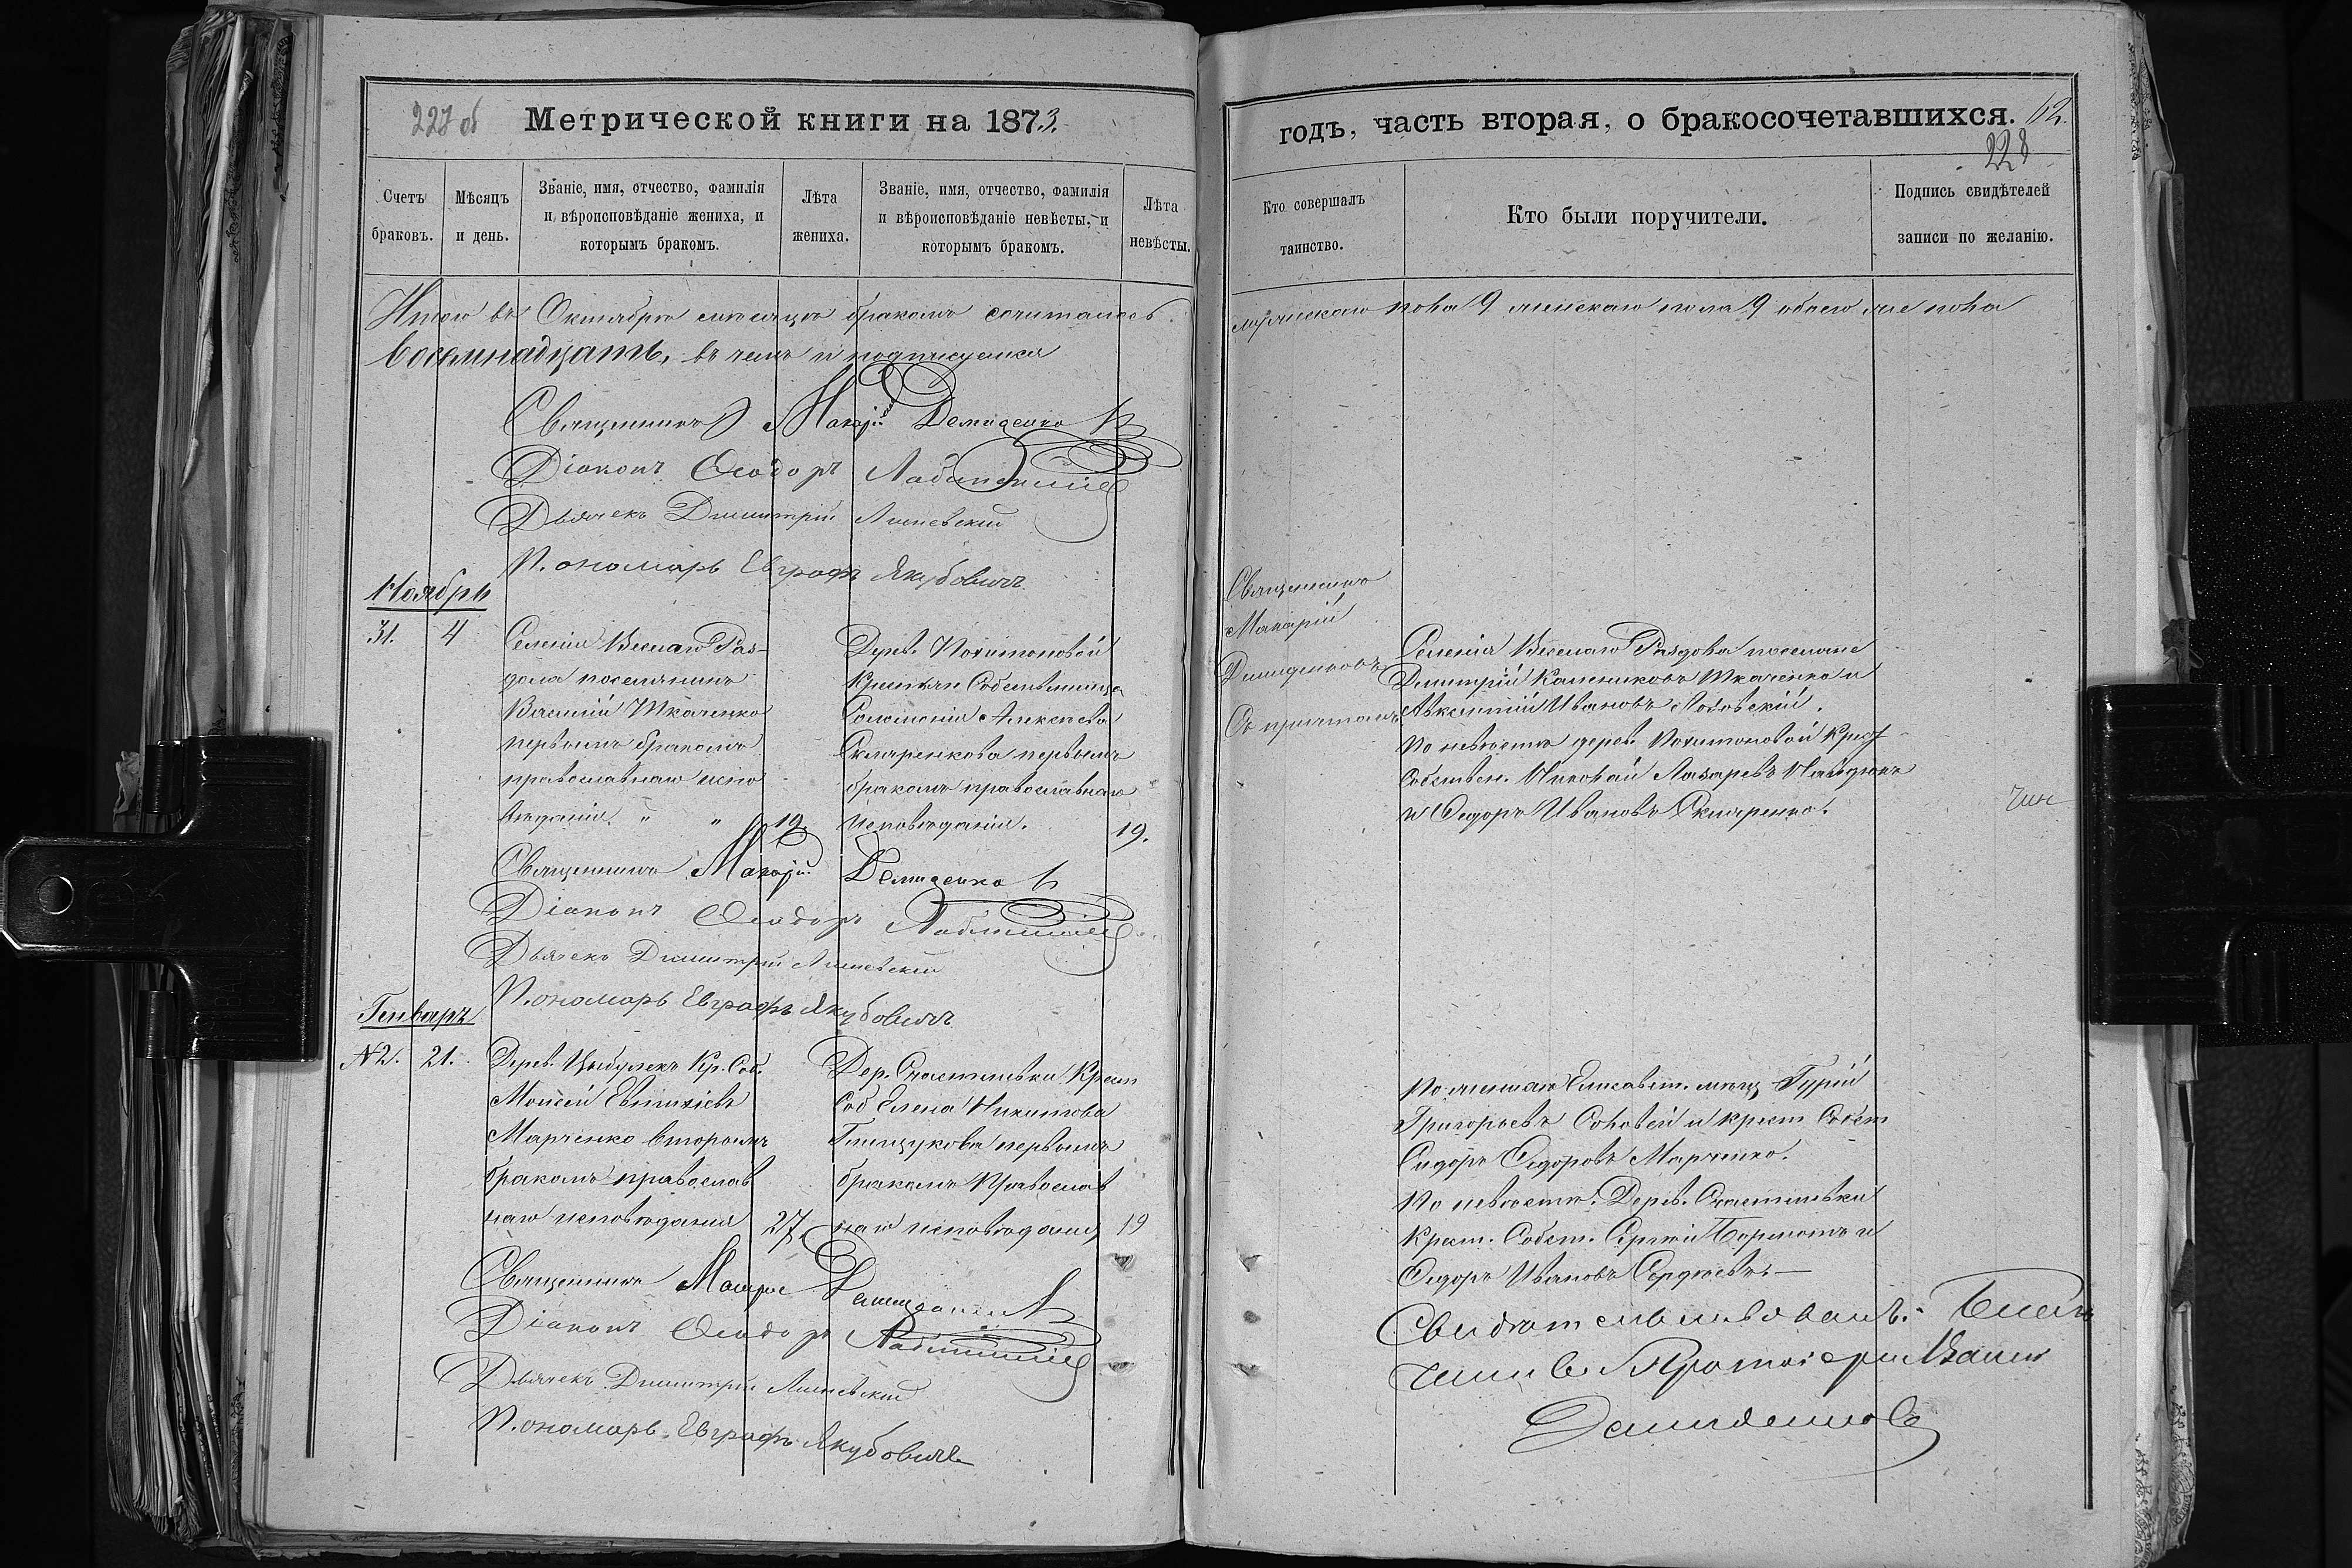 227 об Метрической книги на 1873.
годъ, часть вторая, о бракосочетавшихся. 62.
228
Счетъ браковъ.
Мѣсяцъ и день.
Званіе, имя, отчество, фамилія и вѣроисповѣданіе жениха, и которымъ бракомъ.
Лѣта жениха.
Званіе, имя, отчество, фамилія и вѣроисповѣданіе невѣсты, и которымъ бракомъ.
Лѣта невѣсты.
Кто совершалъ таинство.
Кто были поручители.
Подпись свидѣтелей записи по желанію.
Итого въ Октябрѣ мѣсяцѣ бракомъ сочиталось
мужескаго пола 9 женскаго пола 9 обоего же пола
восемнадцать, въ чемъ и подписуемся
Священникъ Макарій Демиденко
Діаконъ Ѳеодоръ
Дьячекъ Димитрій
Пономарь Евграфъ Якубовичъ
Ноябрь
31. 4
Селенія Вселаго Раз-
дола поселянинъ
Василій Ткаченко
первымъ бракомъ
православнаго испо
вѣданія " " 19.
Дерев. Похитоновой
Крестьян. Собственница
Соломонія Алексѣева
Скляренкова первымъ
бракомъ православнаго
исповѣданія. 19.
Священникъ
Макарій
Демиденковъ
Съ причтомъ
Селенія Веселаго Раздола поселяне
Димитрій Калениковъ Ткаченко и
Авксентій Ивановъ
По невѣстѣ дерев. Похитоновой Крест
Собствен. Николай Лазаревъ Найдюкъ
и Ѳедоръ Ивановъ Скляренко.
Священникъ Макарій Демиденко
Діаконъ Ѳеодоръ
Дьячекъ Димитрій
Пономарь Евграфъ Якубовичъ
Генварь
№2. 21.
Дерев. Цыбулекъ Кр. Соб.
Моисей Евтихіевъ
Марченко вторымъ
бракомъ православ
наго исповѣданія 27.
Дер. Счастливки Крест
Соб Елена Никитова
первымъ
бракомъ Православ
наго исповѣдані, 19
По жениху Елисавет. мѣщ. Гурій
Григорьевъ Соловей и крест Собст
Сидоръ Ѳедоровъ Марченко.
По невѣстѣ: Дерев. Счастливки
Крест. Собст. Сергѣй и
Ѳедоръ Ивановъ Сергѣевъ.
Священникъ Макарій Демиденко
Діаконъ Ѳеодоръ
Дьячекъ Димитрій
Пономарь Евграфъ Якубовичъ
Свидѣтельствовалъ: Благо
чинный Протоіерей
Демиденковъ